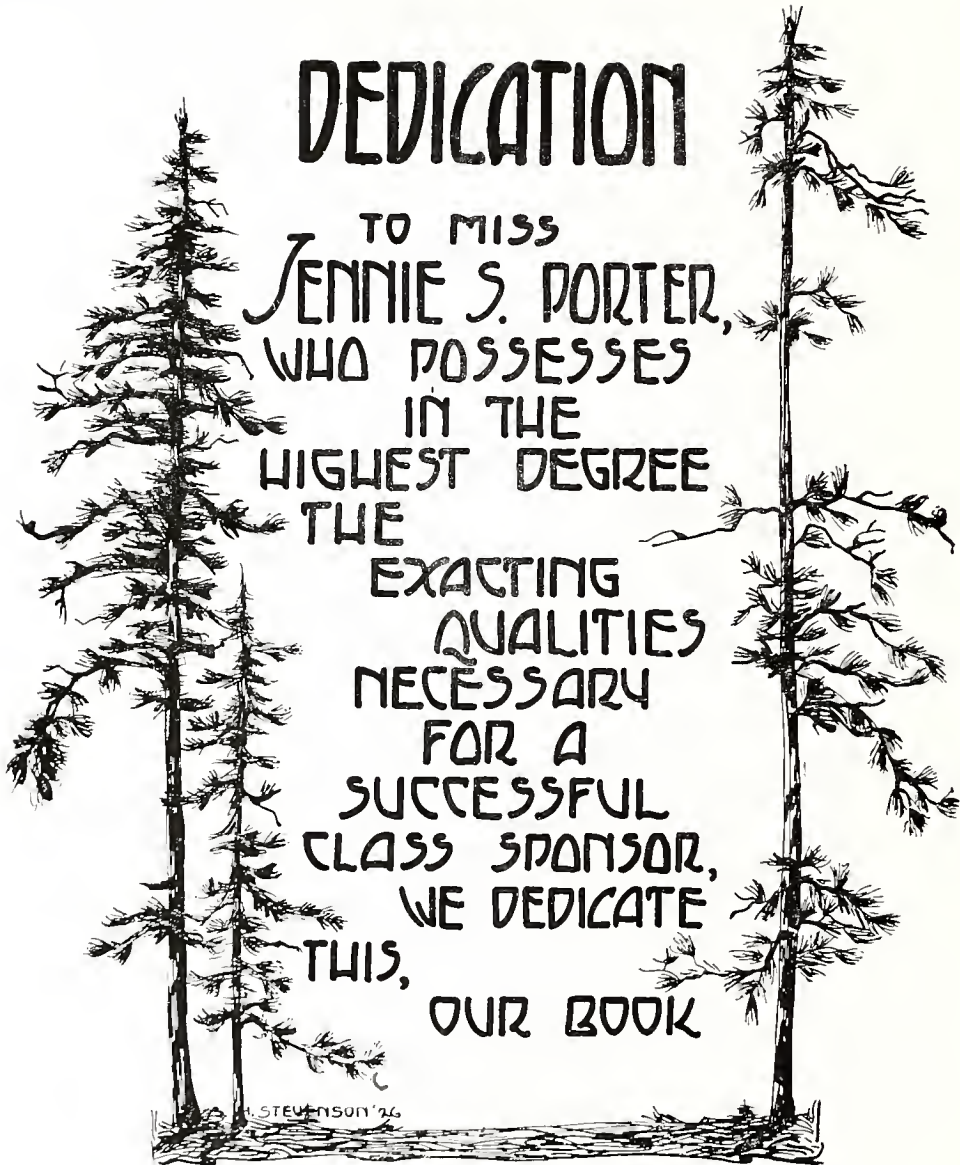 DEDICATION
TO MISS
JENNIE S. PORTER,
WHO POSSESSES
IN THE
HIGHEST DEGREE
THE
EXACTING
QUALITIES
NECESSARY
FOR A
SUCCESSFUL
CLASS SPONSOR,
WE DEDICATE
THIS,
OUR BOOK
H. STEVENSON '26